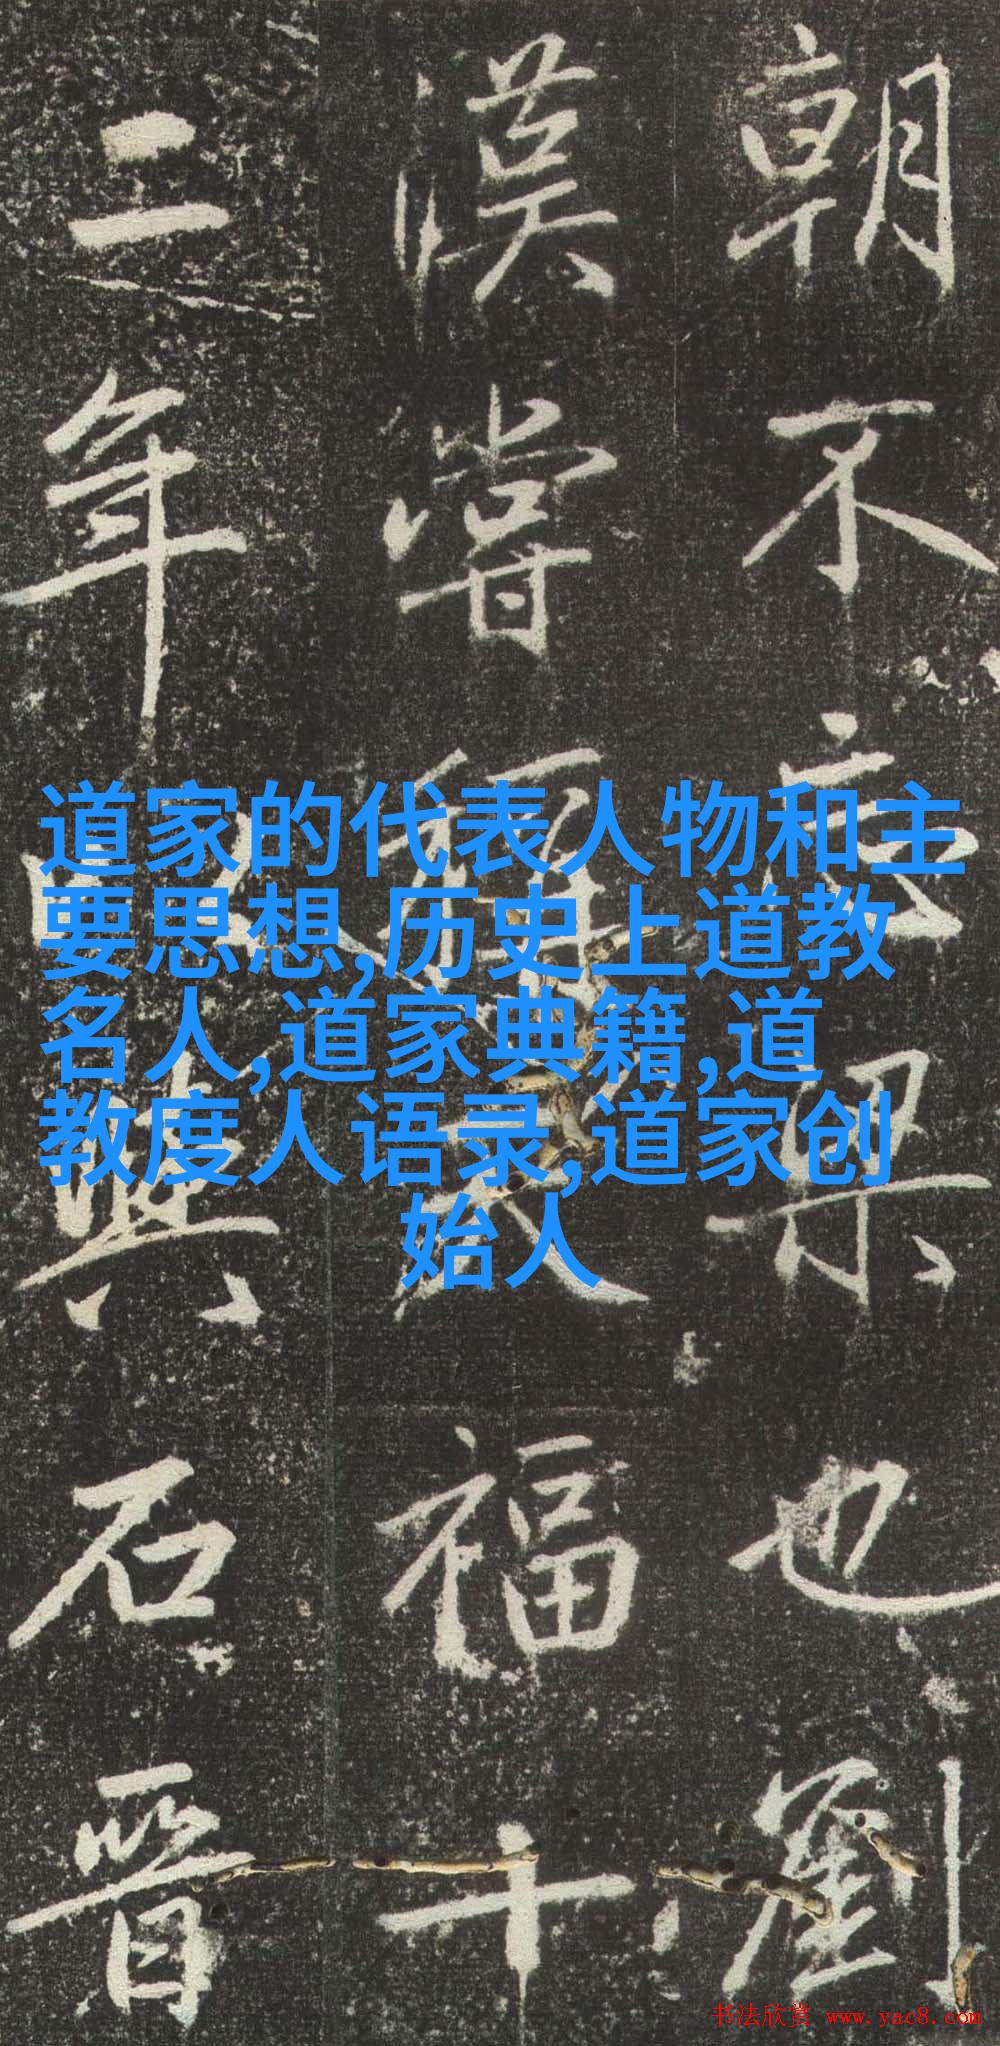 朝不果也劉
漢嘗天福十
二年與石晉
道家的代表人物和主
要思想,历史上道教
名人,道家典籍,道
教度人语录,道家创
始人
书法欣赏 www.yac8.com